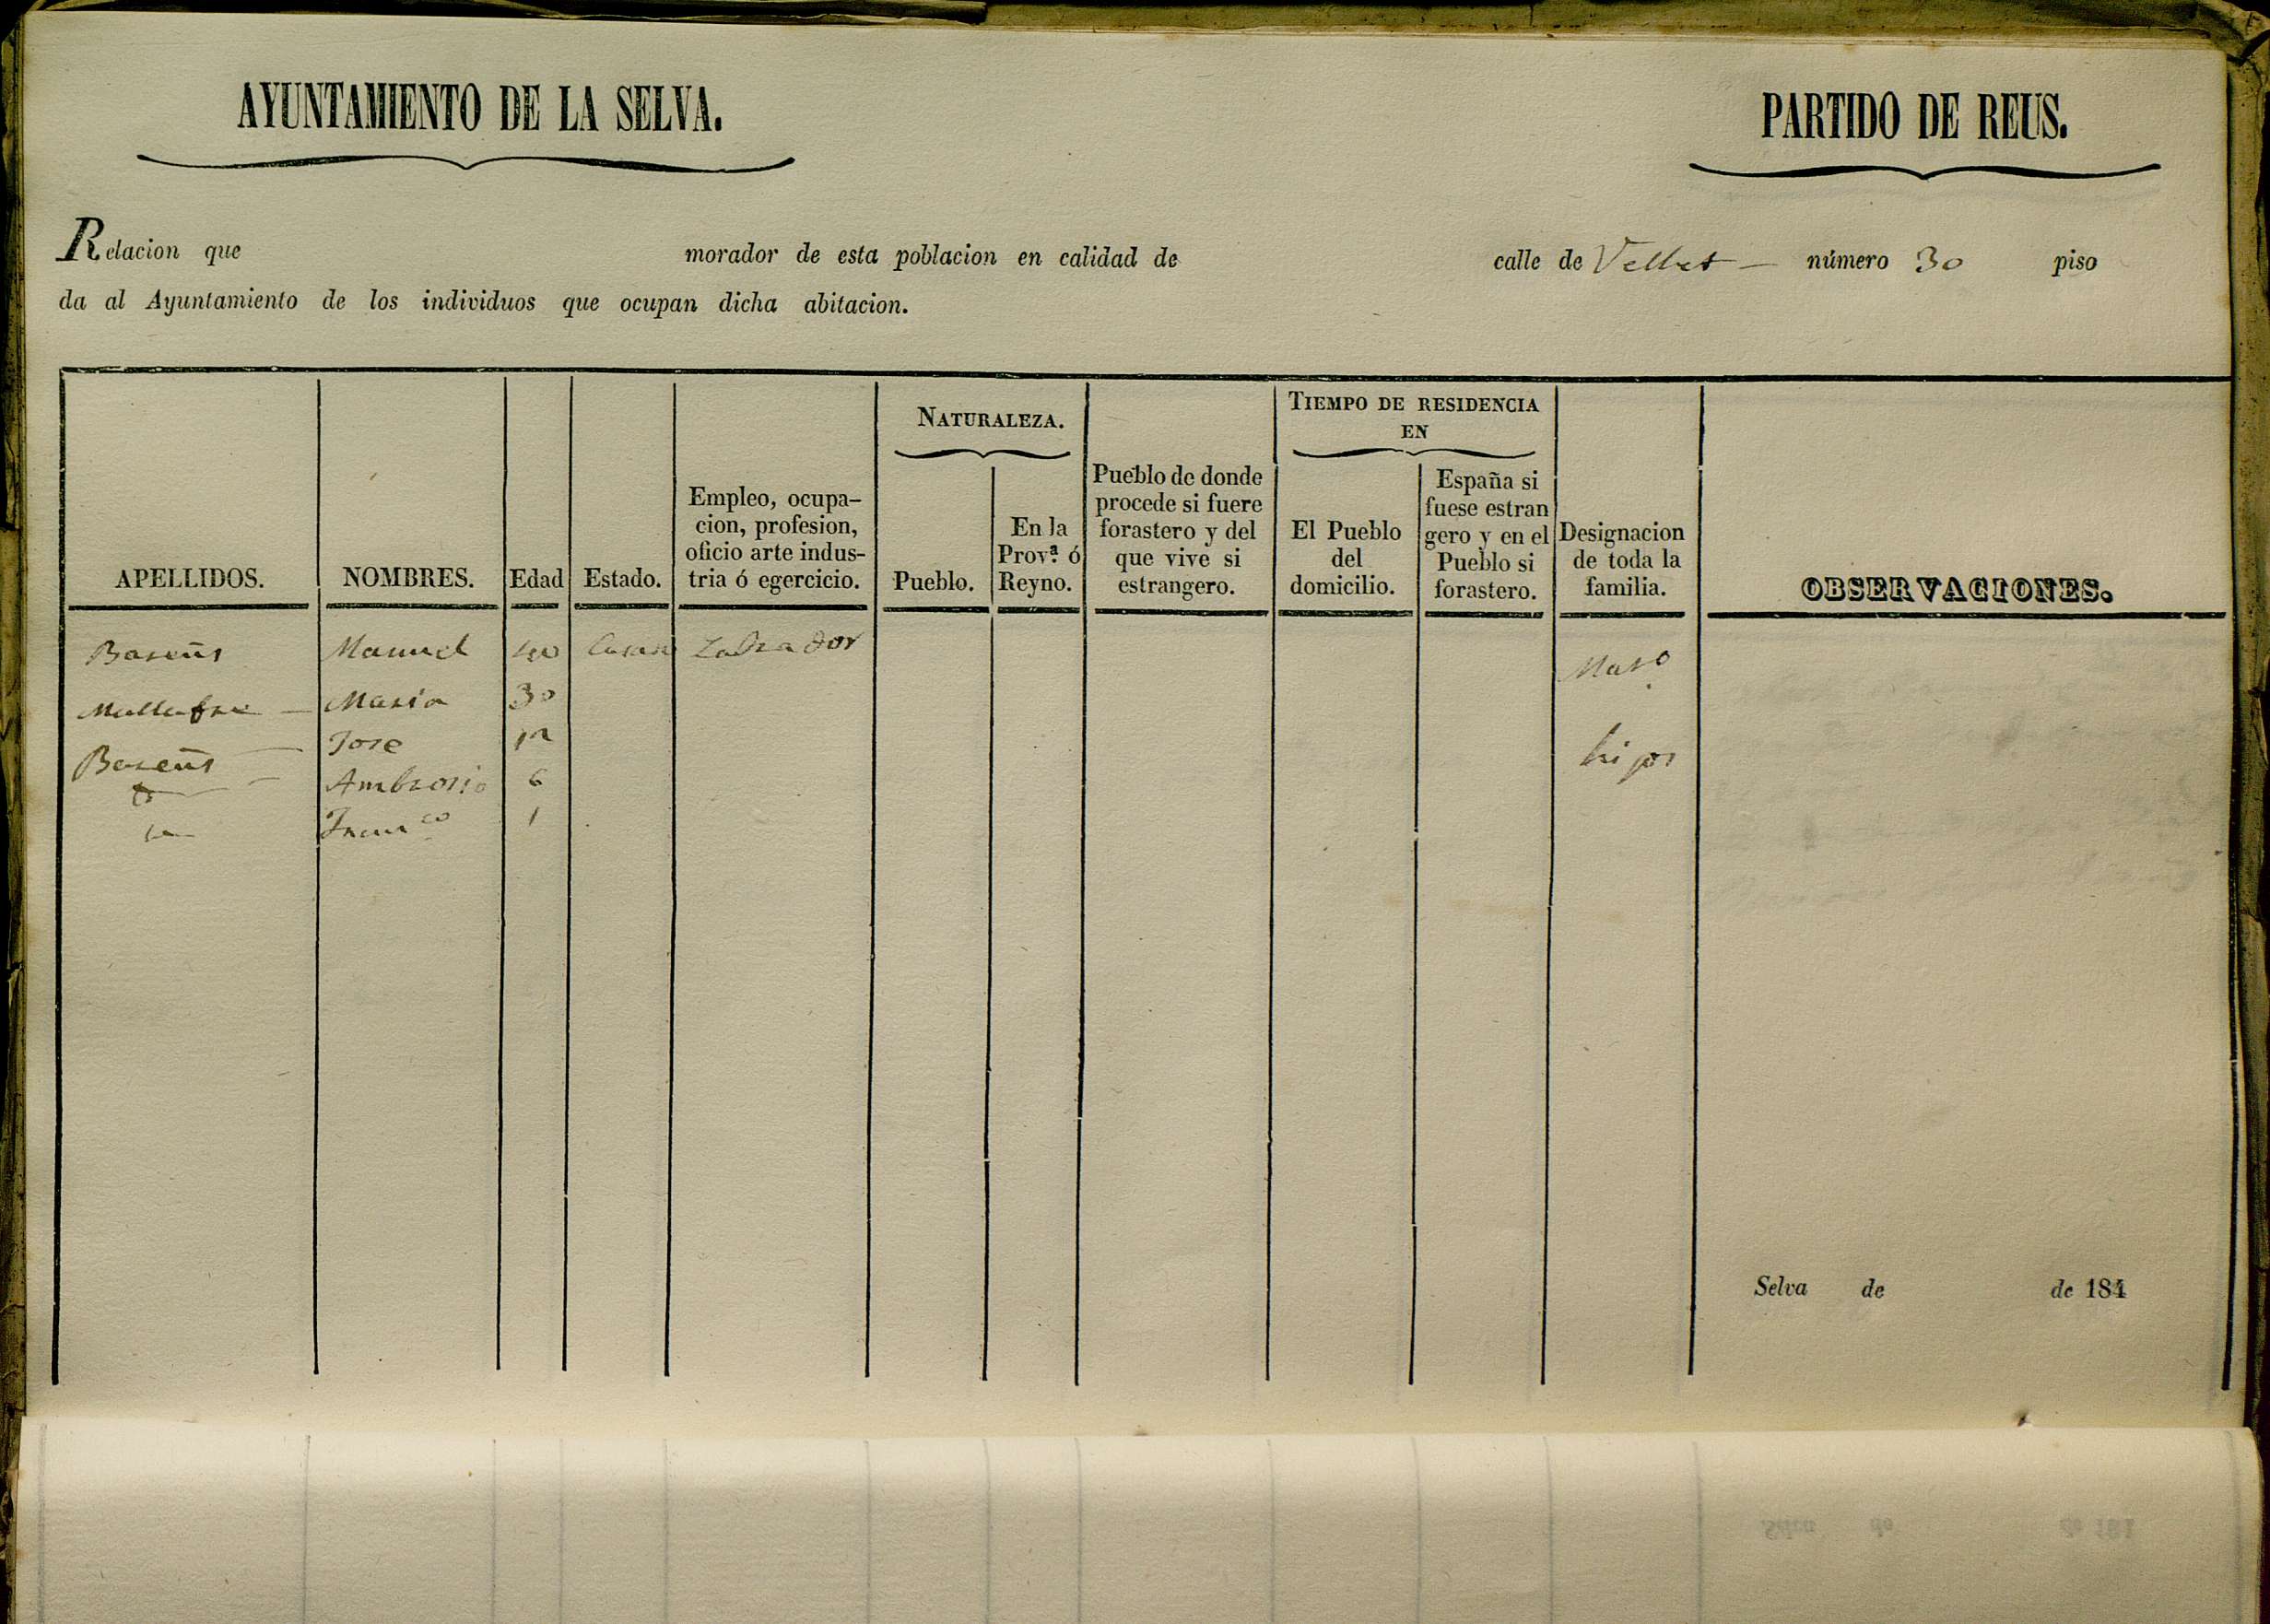 AYUNTAMIENTO DE LA SELVA.
PARTIDO DE REUS.
Relacion que morador de esta poblacion en calidad de calle de Vellet — número 30 piso
da al Ayuntamiento de los individuos que ocupan dicha abitacion.
APELLIDOS.
NOMBRES.
Edad
Estado.
Empleo, ocupa-
cion, profesion,
oficio arte indus-
tria ó egercicio.
NATURALEZA.
Pueblo.
En la
Prov.ª ó
Reyno.
Pueblo de donde
procede si fuere
forastero y del
que vive si
estrangero.
TIEMPO DE RESIDENCIA
EN
El Pueblo
del
domicilio.
España si
fuese estran
gero y en el
Pueblo si
forastero.
Designacion
de toda la
familia.
OBSERVACIONES.
Manuel 40 Labrador
Maria 30
Jose 12
Ambrosio 6 hijos
Franco 1
Selva de de 184